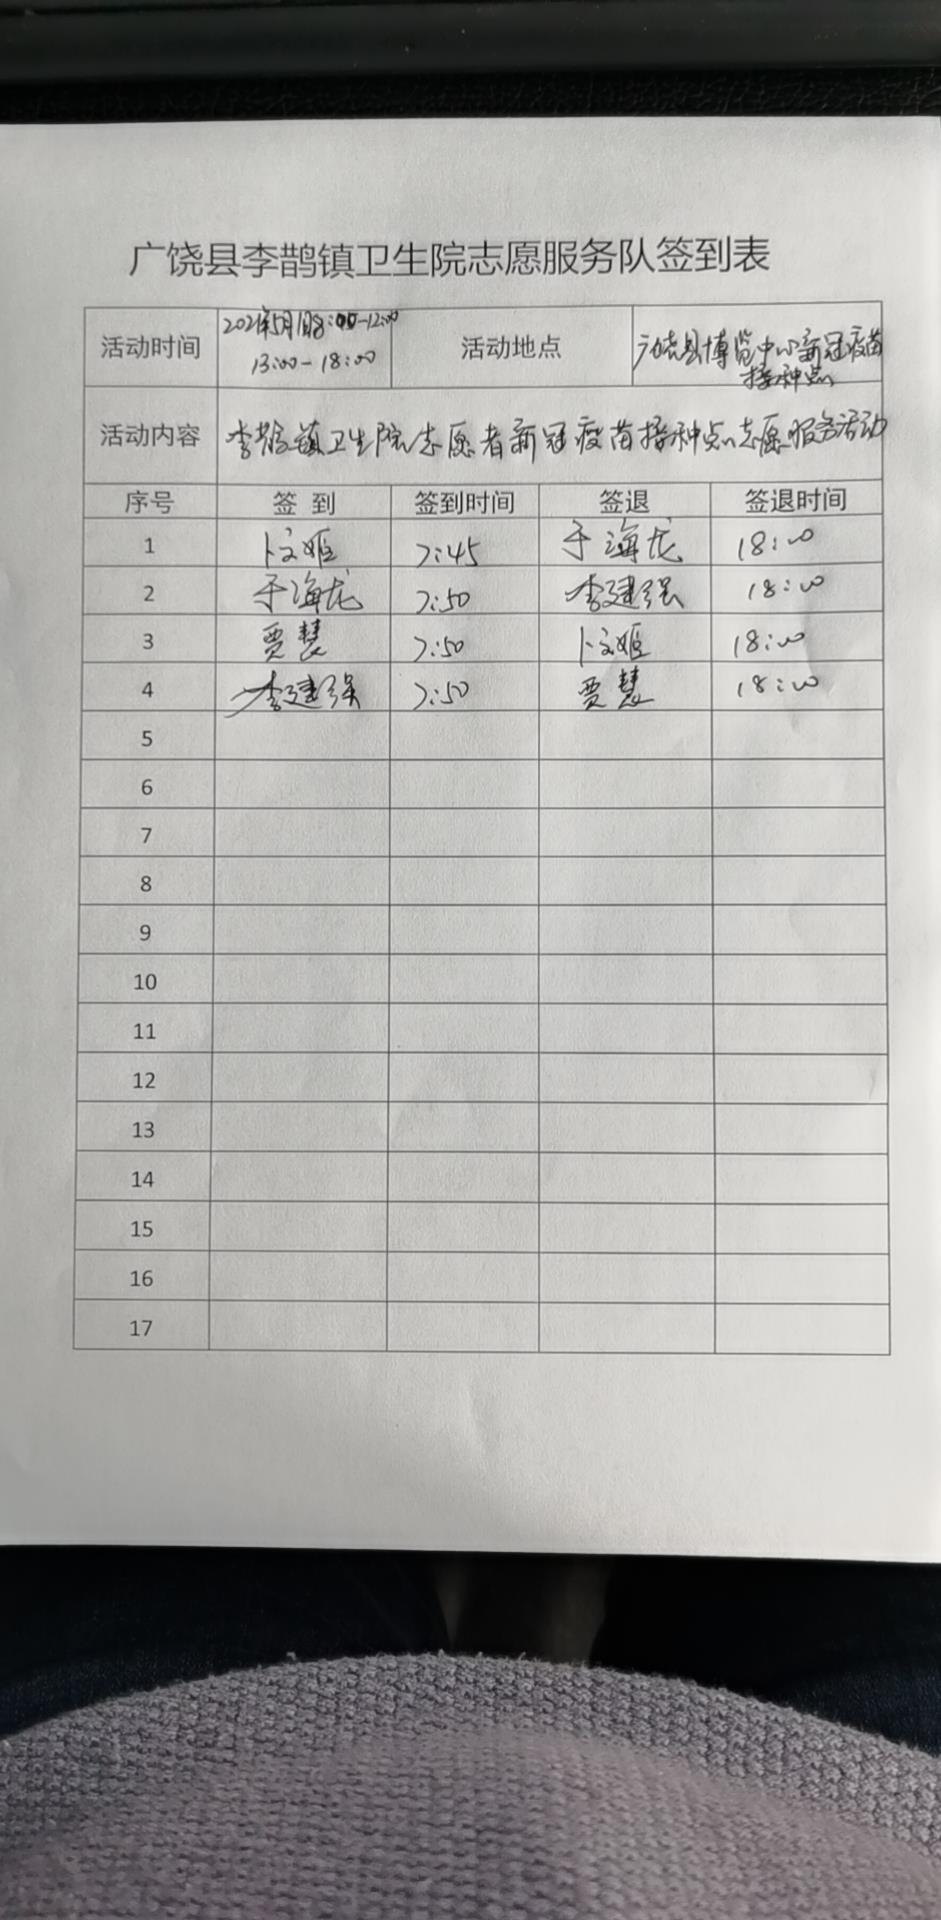 广饶县李鹊镇卫生院志愿服务队签到表
活动时间 2021年5月1日8:00-12:00 13:00-18:00 活动地点 广饶县博览中心新冠疫苗接种点
活动内容 李鹊镇卫生院志愿者新冠疫苗接种点志愿服务活动
序号 签到 签到时间 签退 签退时间
1 卜文姬 7:45 于海龙 18:00
2 于海龙 7:50 李建强 18:00
3 贾慧 7:50 卜文姬 18:00
4 李建强 7:50 贾慧 18:00
5
6
7
8
9
10
11
12
13
14
15
16
17